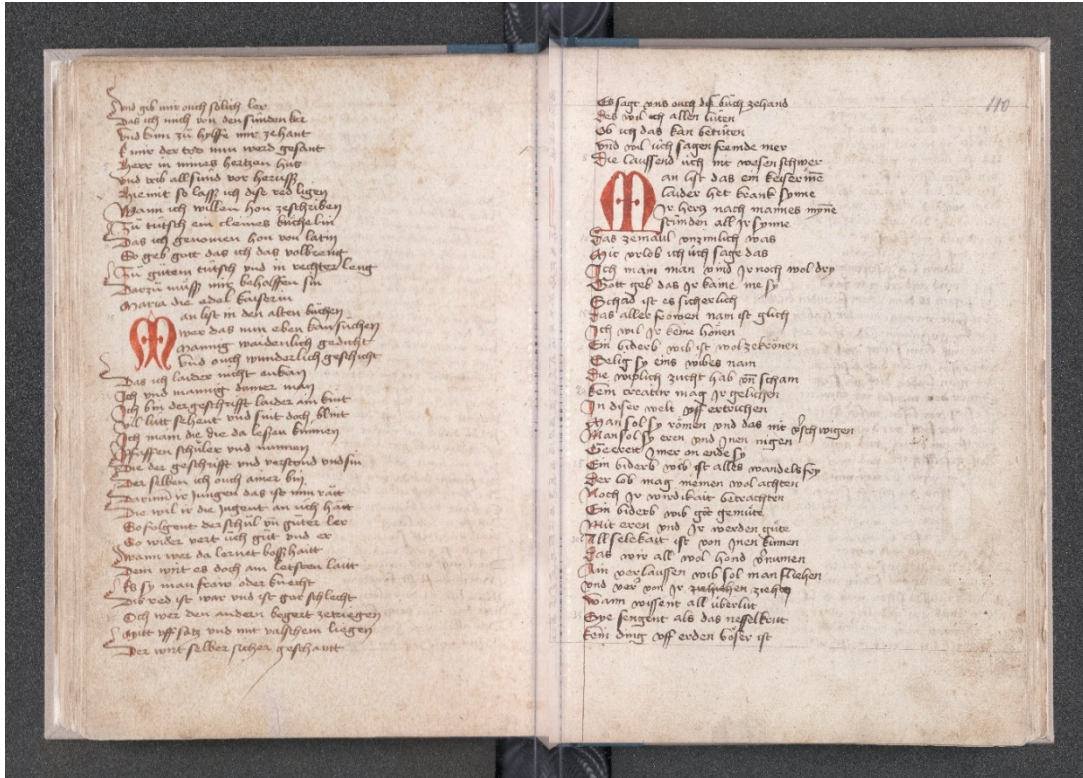 Vnd gib mir ouch sölich ler
Das ich mich von den sünden ker
Vnd kum zů hylffe mir zehant
E mir der tod mun werd gesant
Herr in mines hertzen hus
Vnd trib all sünd vor heruß
Hie mit so lass ich dise red ligen
Wann ich willen hon zeschriben
Zů tütsch ein cleines büchelin
Das ich genomen hon von latin
So geb gott das ich das volbreng
Zů gůtem tütsch vnd in rechter leng
Darzů můss mir beholffen sin
Maria die edel kaiserin
Man list in den alten bůchen
wer das nun eben kan sůchen
Mannig waidenlich gedicht
Vnd ouch wunderlich geschicht
Das ich laider nicht enkan
Ich vnd mannig dumer man
Ich bin der geschrifft laider ain kint
Vil lütt sehent vnd sint doch blint
Ich main die die da leßen künnen
Pfaffen schůler vnd nunnen
Die der geschrifft vnd verstond vnd sin
Der selben ich ouch ainer bin
Darumb ir jungen das ist min rätt
Die wil ir die jugent an üch hätt
So folgent der schůl vn gůter ler
So wider vert üch gůt vnd er
Wann wer da lernet boßhaitt
Dem wirt es doch am letsten laitt
Es sy man fraw oder knecht
Dis red ist war vnd ist gar schlecht
Och wer den andern begert zetriegen
Mitt vff satz vnd mit valschem liegen
Der wirt selber sicher geschant
110
Es sagt vns ouch diß bůch zehand
Des wil ich allen lüten
Ob ich das kan betüten
Vnd wil üch sagen fremde mer
Die laussend üch nit wesen schwer
Man list das ein keiserine
laider het krank synne
Ir hercz nach mannes myne
stůnden all Ir synne
Das zemaul vnzimlich was
Mit vrlob ich üch sage das
Ich main man vind Ir noch wol dry
Gott geb das Ir kaine me sy
Schad ist es sicherlich
Das aller frowen nam ist glich
Ich wil Ir keine hönen
Ein biderb wib ist wol zekrönen
Selig sy eins wibes nam
Die wiplich zucht hab vn scham
kein creatur mag Ir gelichen
In diser welt vff ertrichen
Man sol sy römen vnd das nit verschwigen
Man sol sy eren vnd Inen nigen
Geereit Imer on ende sy
Ein biderb wib ist alles wandels fry
Der lob mag niemen wol achten
Noch Ir wirdikait betrachten
Ein biderb wib git gemüte
Mit eren vnd Ir werden güte
All selekait ist von Inen kümen
Das wir all wol hond vernumen
Ain verlaussen wib sol man fliehen
Vnd ver von Ir ziehen
Wann wissent all überlut
Sye sengent als das nesselkrut
kein ding vff erden böser ist